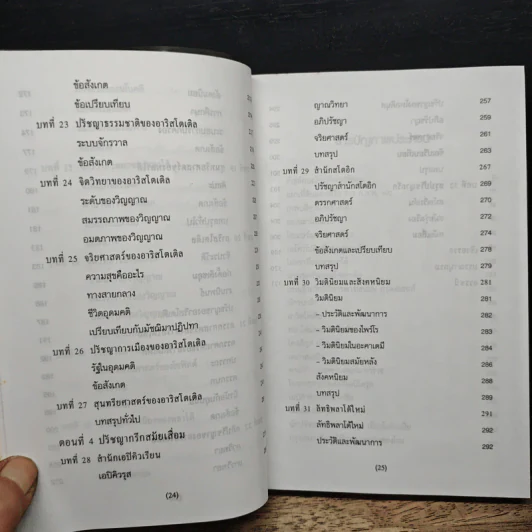 ข้อสังเกต
ข้อเปรียบเทียบ
บทที่ 23 ปรัชญาธรรมชาติของอาริสโตเติล
ระบบจักรวาล
ข้อสังเกต
บทที่ 24 จิตวิทยาของอาริสโตเติล
ระดับของวิญญาณ
สมรรถภาพของวิญญาณ
อมตภาพของวิญญาณ
บทที่ 25 จริยศาสตร์ของอาริสโตเติล
ความสุขคืออะไร
ทางสายกลาง
ชีวิตอุดมคติ
เปรียบเทียบกับมัชฌิมาปฏิปทา
บทที่ 26 ปรัชญาการเมืองของอาริสโตเติล
รัฐในอุดมคติ
ข้อสังเกต
บทที่ 27 สุนทรียศาสตร์ของอาริสโตเติล
บทสรุปทั่วไป
ตอนที่ 4 ปรัชญากรีกสมัยเสื่อม
บทที่ 28 สำนักเอปิคิวเรียน
เอปิคิวรุส
(24)
ญาณวิทยา 257
อภิปรัชญา 259
จริยศาสตร์ 261
บทสรุป 263
บทที่ 29 สำนักสโตอิก 267
ปรัชญาสำนักสโตอิก 269
ตรรกศาสตร์ 270
อภิปรัชญา 272
จริยศาสตร์ 274
ข้อสังเกตและเปรียบเทียบ 278
บทสรุป 279
บทที่ 30 วิมตินิยมและสังคหนิยม 281
วิมตินิยม 281
– ประวัติและพัฒนาการ 282
– วิมตินิยมของไพร์โร 283
– วิมตินิยมในอะคาเดมี 283
– วิมตินิยมสมัยหลัง 286
สังคหนิยม 288
บทสรุป 289
บทที่ 31 ลัทธิพลาโต้ใหม่ 291
ลัทธิพลาโต้ใหม่ 292
ประวัติและพัฒนาการ 292
(25)